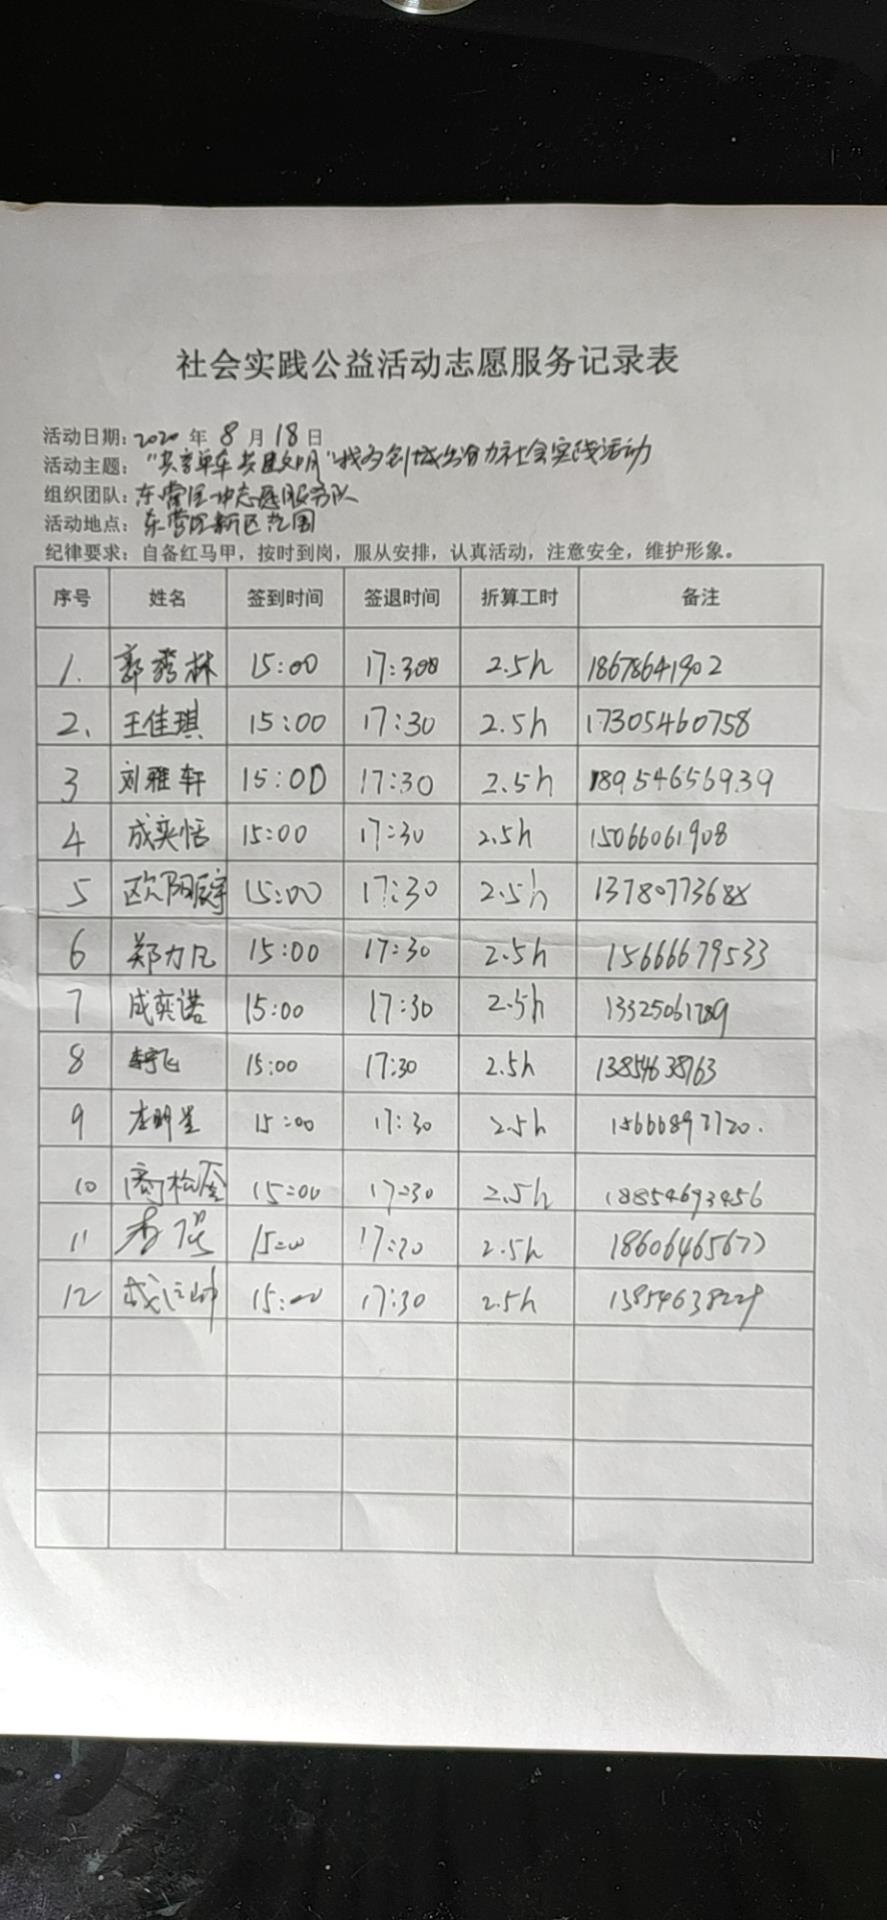 社会实践公益活动志愿服务记录表
活动日期：2020 年 8 月 18 日
活动主题："共享单车 共建文明"我为创城出份力社会实践活动
组织团队：东营区 志愿服务队
活动地点：东营区新区范围
纪律要求：自备红马甲，按时到岗，服从安排，认真活动，注意安全，维护形象。
序号 姓名 签到时间 签退时间 折算工时 备注
1. 郭秀林 15:00 17:300 2.5h 18678641902
2. 王佳琪 15:00 17:30 2.5h 17305460758
3 刘雅轩 15:00 17:30 2.5h 18954656939
4 成奕恬 15:00 17:30 2.5h 15066061908
5 欧阳宸宇 15:00 17:30 2.5h
6 郑力凡 15:00 17:30 2.5h 15666679533
7 成奕诺 15:00 17:30 2.5h 13325061789
8 15:00 17:30 2.5h 13854638763
9 李明星 15:00 17:30 2.5h
10 商松 15:00 17:30 2.5h 18854693456
11 李强 15:00 17:30 2.5h 18606465677
12 15:00 17:30 2.5h